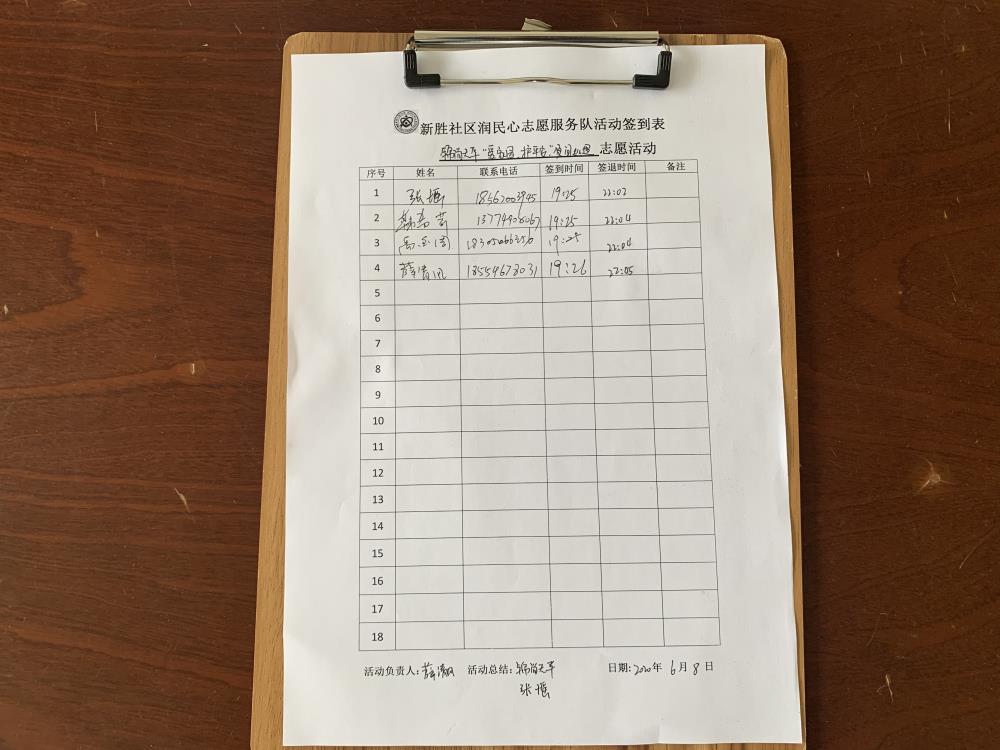 新胜社区润民心志愿服务队活动签到表
锦尚天华 护平安 夜间巡逻 志愿活动
序号 姓名 联系电话 签到时间 签退时间 备注
1 张 18562003945 19:25 22:02
2 19:25 22:04
3 19:25 22:04
4 薛清汎 18554678031 19:26 22:05
5
6
7
8
9
10
11
12
13
14
15
16
17
18
活动负责人: 薛 活动总结: 锦尚天华 日期: 2020年 6月 8日
张